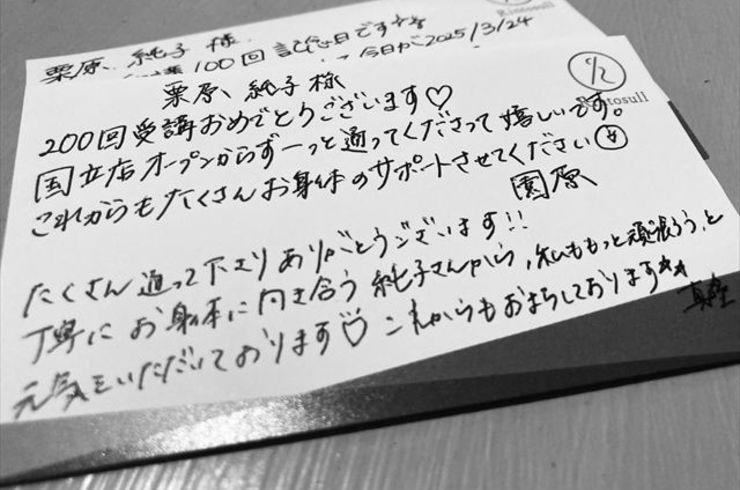 栗原 純子 様
100回記念日です☆☆
今日が2025/3/24
Rintosull
栗原 純子 様
7/2
200回受講おめでとうございます♡
国立店オープンからずーっと通ってくださって嬉しいです。
これからもたくさんお身体のサポートさせてください
園原
たくさん通って下さりありがとうございます!!
丁寧にお身体に向き合う純子さんから、私ももっと頑張ろう、と
元気をいただいております♡これからもおまちしております☆☆